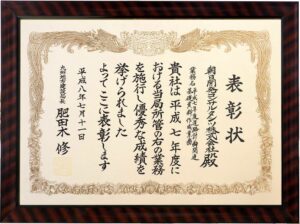 表彰状
朝日開発コンサルタンツ株式会社殿
業務名 平成七年度
貴社は平成七年度に
おける当局所管の右の業務
を施行し優秀な成績を
挙げられました
よってここに表彰します
平成八年七月十一日
九州地方建設局長
肥田木 修